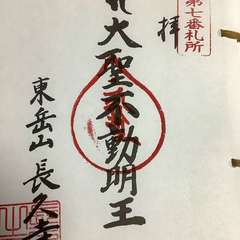 第七番札所
奉拝
大聖不動明王
東岳山 長久寺